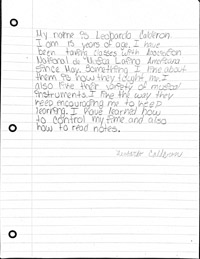 My name is Leopardo Calderon.
I am 15 years of age. I have
been taking classes with Association
National de Musica Latino Americana
since May. Something I like about
them is how they taught me. I
also like their variety of musical
instruments. I like the way they
keep encouraging me to keep
learning. I have learned how
to control my time and also
how to read notes.
Calderon